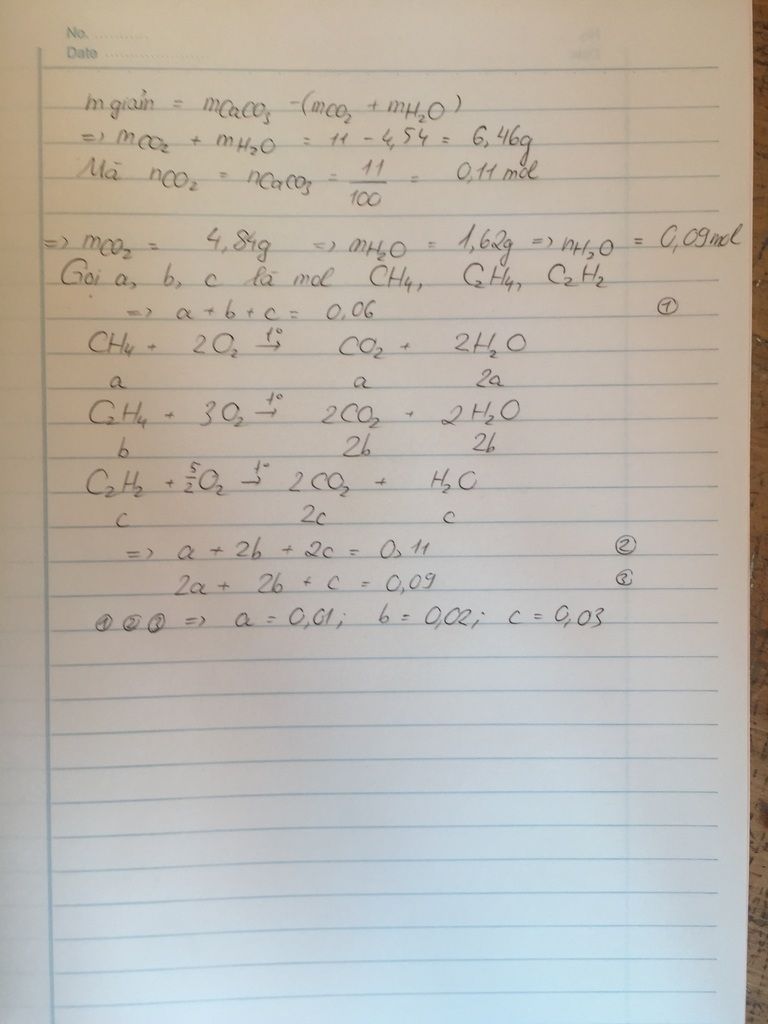 No. ............
Date .......................
m giảm = mCaCO₃ -(mCO₂ + mH₂O)
=> mCO₂ + mH₂O = 11 - 4,54 = 6,46g
Mà nCO₂ = nCaCO₃ = 11/100 = 0,11 mol
=> mCO₂ = 4,84g => mH₂O = 1,62g => nH₂O = 0,09mol
Gọi a, b, c là mol CH₄, C₂H₄, C₂H₂
=> a + b + c = 0,06 ①
CH₄ + 2O₂ →(t°) CO₂ + 2H₂O
a a 2a
C₂H₄ + 3O₂ →(t°) 2CO₂ + 2H₂O
b 2b 2b
C₂H₂ + 5/2O₂ →(t°) 2CO₂ + H₂O
c 2c c
=> a + 2b + 2c = 0,11 ②
2a + 2b + c = 0,09 ③
① ② ③ => a = 0,01; b = 0,02; c = 0,03